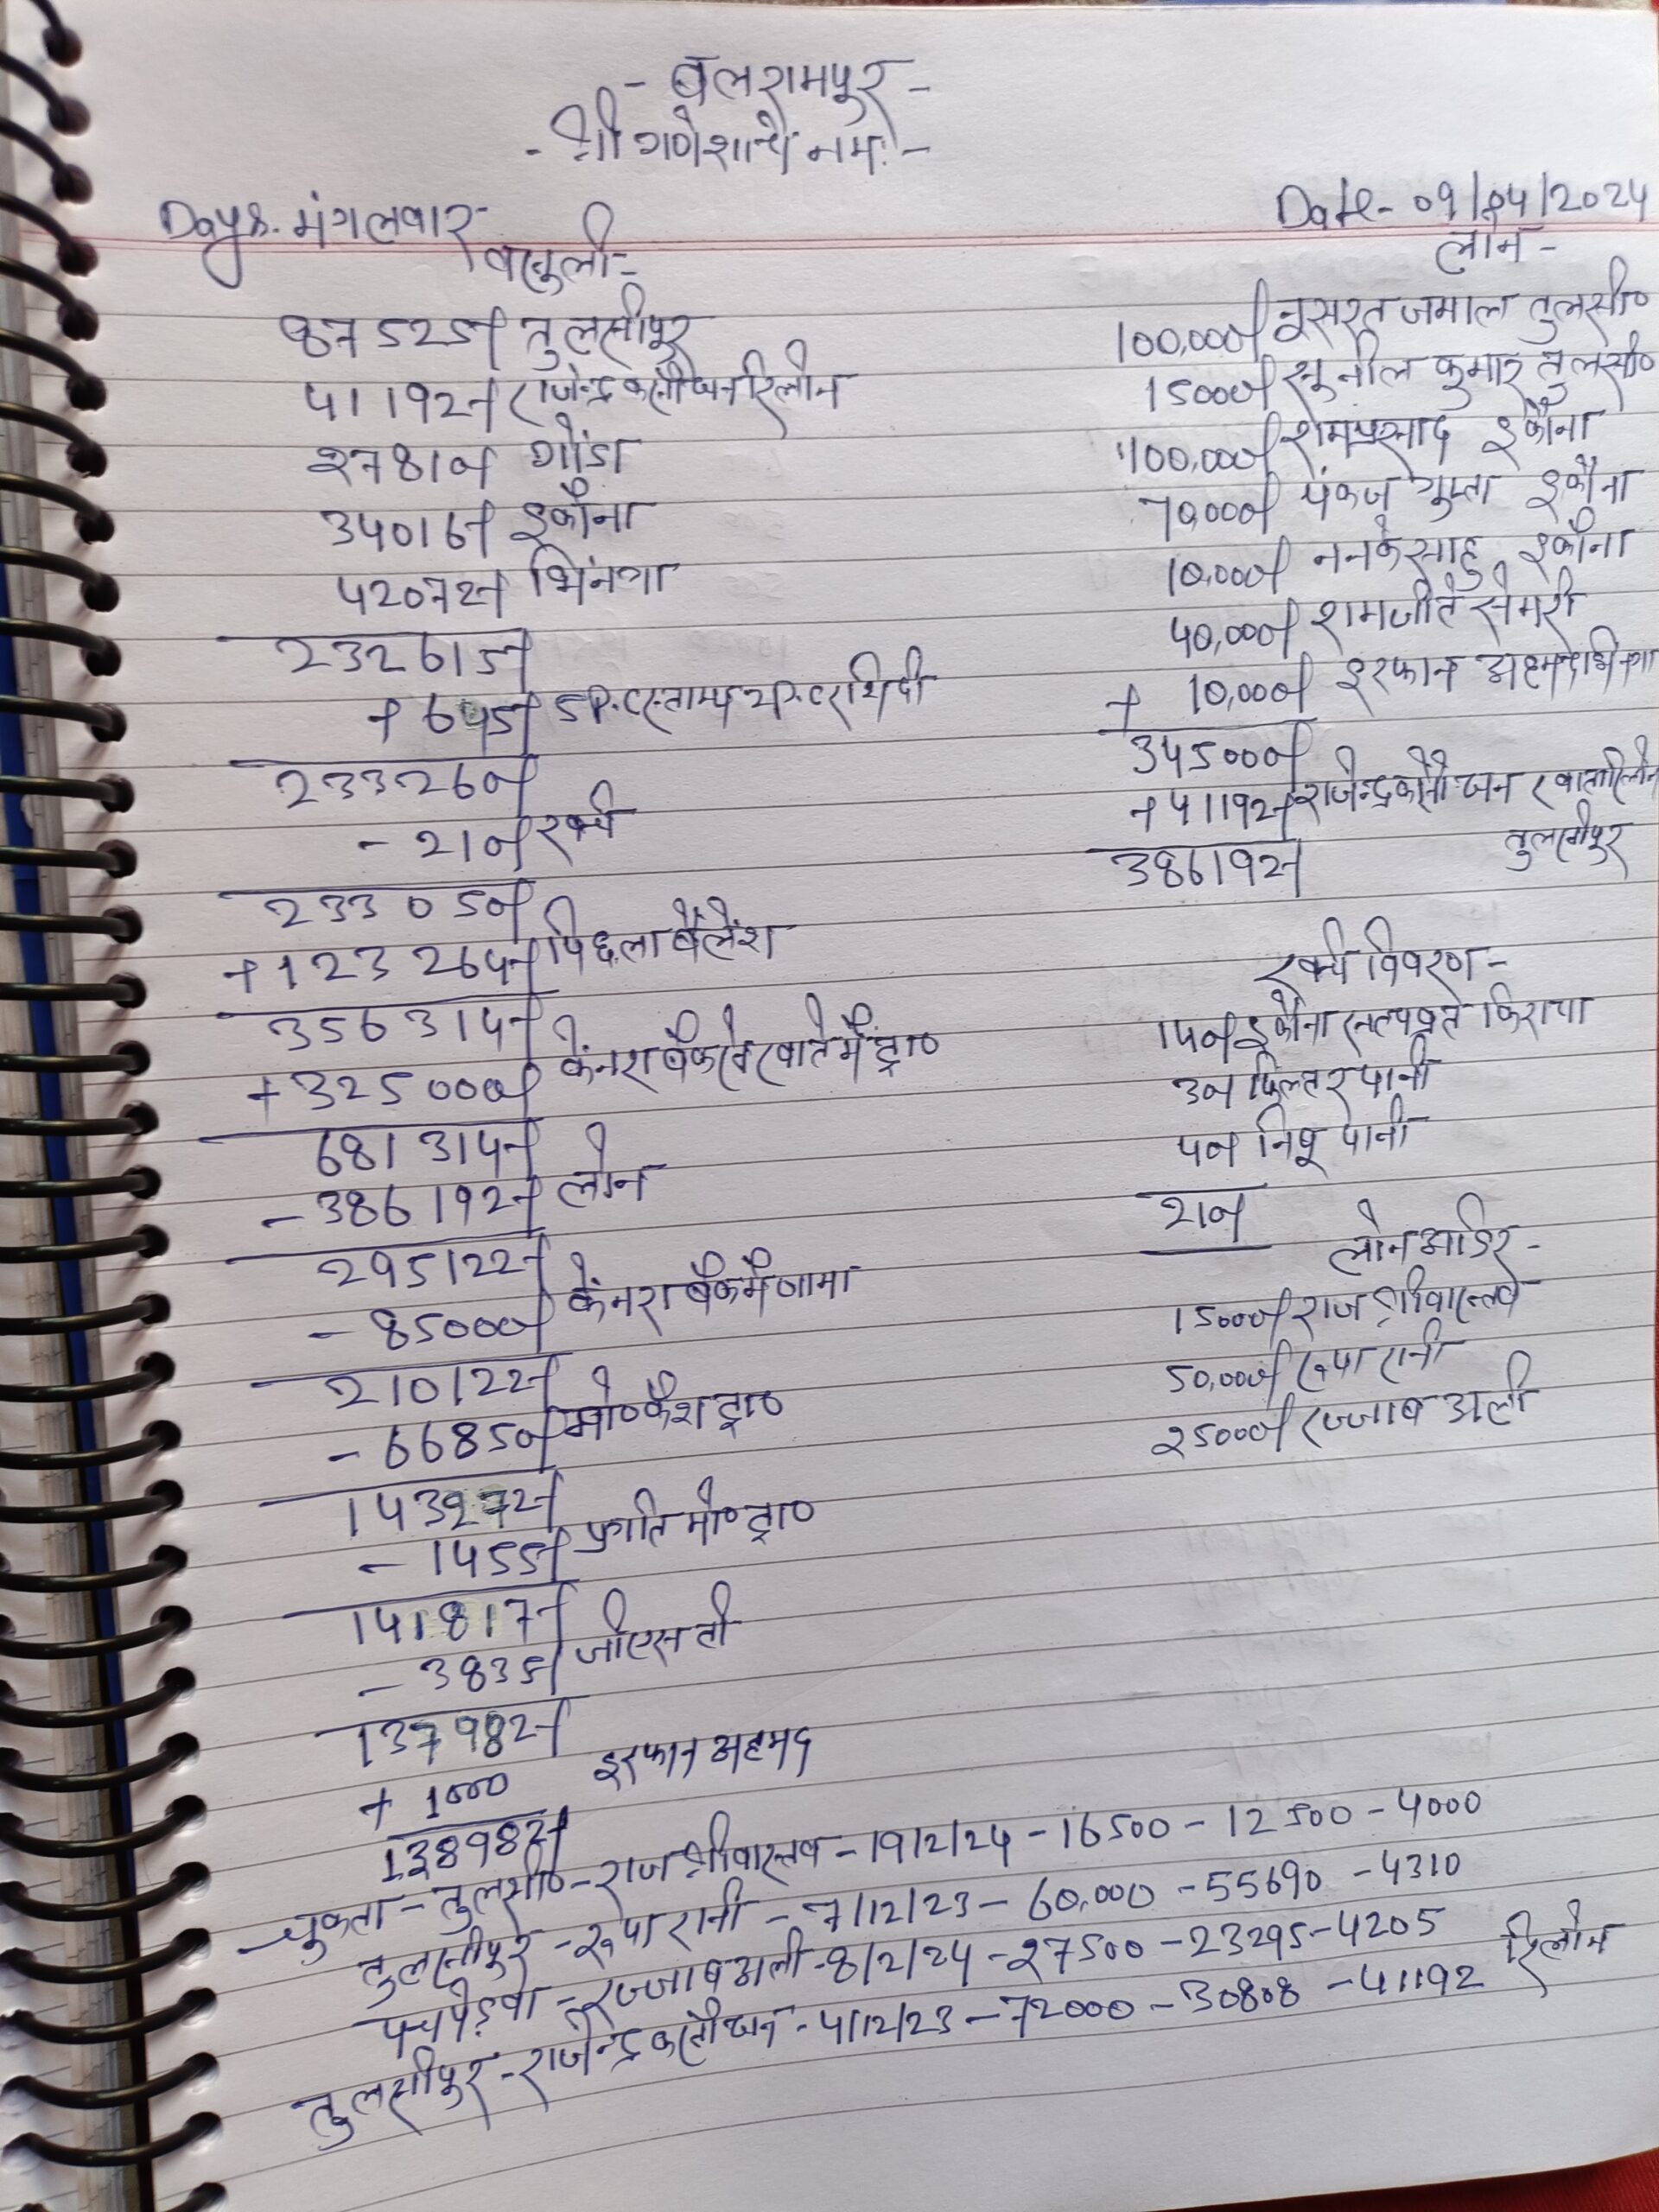 - बलरामपुर -
- श्री गणेशाय नमः -
Days. मंगलवार
Date - 09/04/2024
वसुली -
87525/ तुलसीपुर
41192/ राजेन्द्र कसौधन रिलोन
27810/ गोंडा
34016/ इकौना
42072/ भिंनगा
232615/
+ 645/
233260/
- 210/ खर्च
233050/
+ 123264/ पिछला बैलेंश
356314/
+ 325000/ केनरा बैंक से खाते में ट्रा०
681314/
- 386192/ लोन
295122/
- 85000/ केंनरा बैंक में जामा
210122/
- 66850/ मो० कैश ट्रा०
143272/
- 1455/ प्रगति मो० ट्रा०
141817/
- 3835/ जीएस टी
137982/
+ 1000 इरफान अहमद
138982/
लोन -
100,000/ नुसरत जमाल तुलसी०
15000/ सुनील कुमार तुलसी०
100,000/ रामप्रसाद इकौना
70,000/ पंकज गुप्ता इकौना
10,000/ ननके साहु इकौना
40,000/ रामजीत सेमरी
+ 10,000/ इरफान अहमद भिनगा
345000/
+ 41192/ राजेन्द्र कसौधन रिलोन
तुलसीपुर
386192/
खर्च विवरण -
140/ इकौना किराया
30/ फिल्टर पानी
40/ पानी
210/
लोन आर्डर -
15000/ राज श्रीवास्तव
50,000/ रुपा रानी
25000/ रज्जाब अली
चुकता - तुलसी० - राज श्रीवास्तव - 19/2/24 - 16500 - 12500 - 4000
तुलसीपुर - रुपा रानी - 7/12/23 - 60,000 - 55690 - 4310
पचपेड़वा - रज्जाब अली - 8/2/24 - 27500 - 23295 - 4205
तुलसीपुर - राजेन्द्र कसौधन - 4/12/23 - 72000 - 30808 - 41192 रिलोन